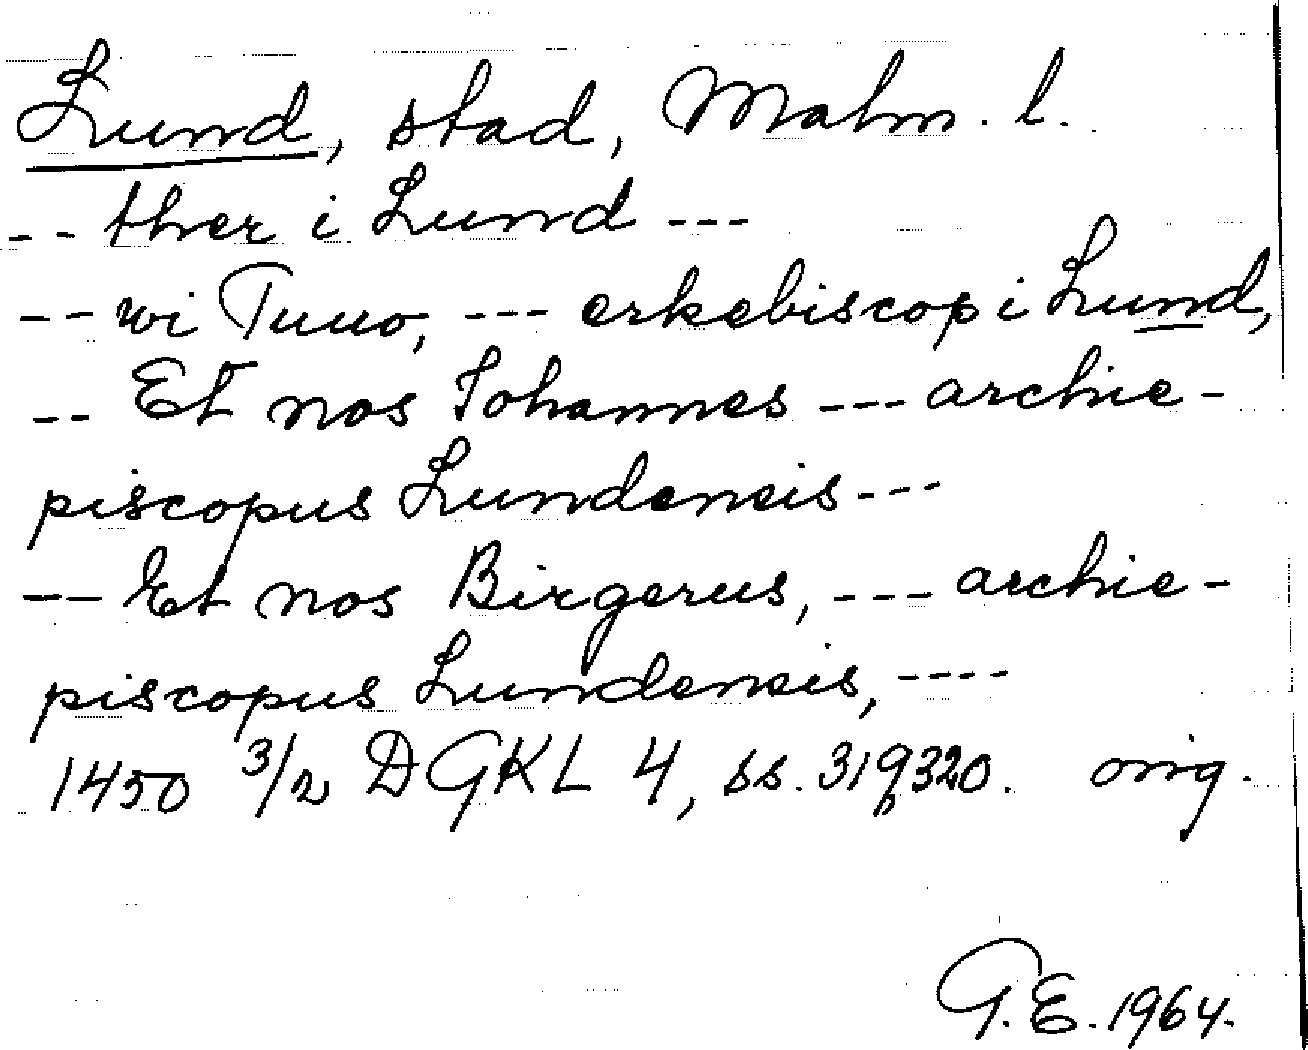 Lund, stad, Malm. l.
-- ther i Lund ---
-- wi Tuuo, --- erkebiscop i Lund,
-- Et nos Johannes --- archie-
piscopus Lundensis ---
-- Et nos Birgerus, --- archie-
piscopus Lundensis, ----
1450 3/2 DGKL 4, ss. 319, 320. orig.
G.E. 1964.